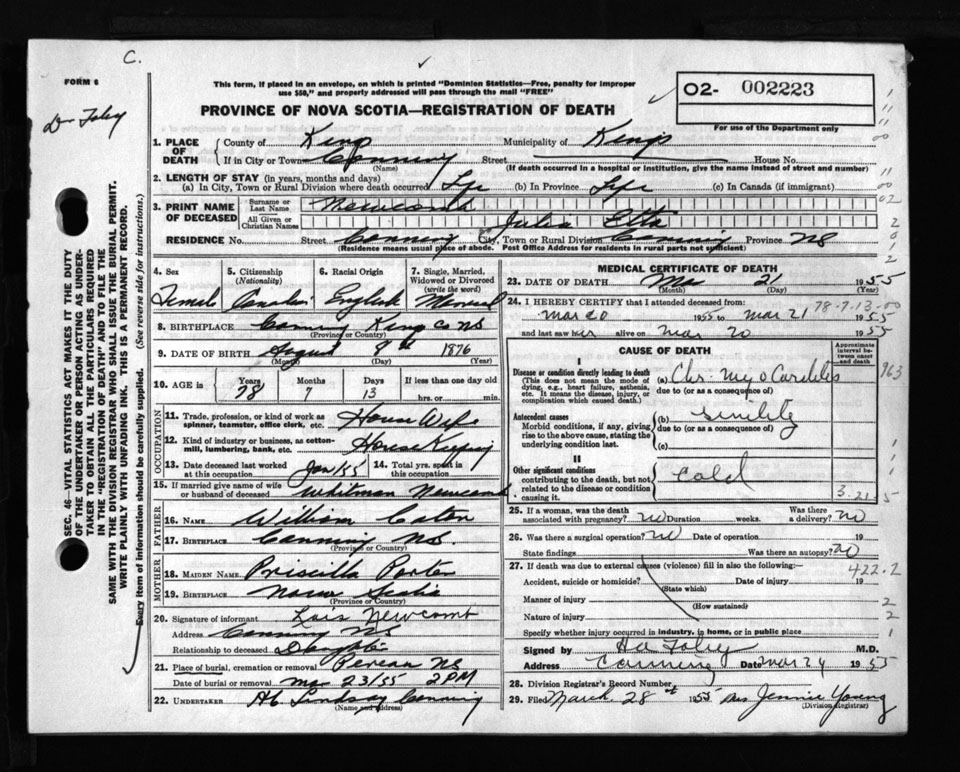 C.
FORM 6
This form, if placed in an envelope, on which is printed "Dominion Statistics—Free, penalty for improper
use $50," and properly addressed will pass through the mail "FREE"
O2- 002223
PROVINCE OF NOVA SCOTIA—REGISTRATION OF DEATH
For use of the Department only
Dr Foley
1. PLACE OF DEATH
County of Kings Municipality of Kings
If in City or Town Canning Street House No.
(Name) (If death occurred in a hospital or institution, give the name instead of street and number)
2. LENGTH OF STAY (in years, months and days)
(a) In City, Town or Rural Division where death occurred Life (b) In Province Life (c) In Canada (if immigrant)
3. PRINT NAME OF DECEASED
Surname or Last Name Newcomb
All Given or Christian Names Julia Etta
RESIDENCE No. Street Canning City, Town or Rural Division Canning Province NS
(Residence means usual place of abode. Post Office Address for residents in rural parts not sufficient)
SEC. 46—VITAL STATISTICS ACT MAKES IT THE DUTY
OF THE UNDERTAKER OR PERSON ACTING AS UNDER-
TAKER TO OBTAIN ALL THE PARTICULARS REQUIRED
IN THE "REGISTRATION OF DEATH" AND TO FILE THE
SAME WITH THE DIVISION REGISTRAR WHO SHALL ISSUE THE BURIAL PERMIT.
WRITE PLAINLY WITH UNFADING INK. THIS IS A PERMANENT RECORD.
Every item of information should be carefully supplied. (See reverse side for instructions.)
4. Sex
Female
5. Citizenship
(Nationality)
Canadian
6. Racial Origin
English
7. Single, Married,
Widowed or Divorced
(write the word)
Married
8. BIRTHPLACE Canning Kings Co NS
(Province or Country)
9. DATE OF BIRTH August 9th 1876
(Month) (Day) (Year)
10. AGE in Years Months Days If less than one day old
78 7 13 hrs. or min.
OCCUPATION
11. Trade, profession, or kind of work as
spinner, teamster, office clerk, etc. House Wife
12. Kind of industry or business, as cotton-
mill, lumbering, bank, etc. House Keeping
13. Date deceased last worked
at this occupation Jan/55
14. Total yrs. spent in
this occupation
15. If married give name of wife
or husband of deceased Whitman Newcomb
FATHER
16. NAME William Eaton
17. BIRTHPLACE Canning NS.
(Province or Country)
MOTHER
18. MAIDEN NAME Priscilla Porter
19. BIRTHPLACE Nova Scotia
(Province or Country)
20. Signature of informant Lois Newcomb
Address Canning NS
Relationship to deceased Daughter
21. Place of burial, cremation or removal Pereau NS
Date of burial or removal Mar 23/55 2 PM
22. UNDERTAKER Lindsay Canning
(Name and address)
MEDICAL CERTIFICATE OF DEATH
23. DATE OF DEATH Mar 21 1955
(Month) (Day) (Year)
24. I HEREBY CERTIFY that I attended deceased from: 78-7-13-00
Mar 20 1955 to Mar 21 1955
and last saw her alive on Mar 20 1955
CAUSE OF DEATH
Approximate
interval between
onset
and death
I
Disease or condition directly leading to death
(This does not mean the mode of
dying, e.g., heart failure, asthenia,
etc. It means the disease, injury, or
complication which caused death.)
(a) Chr. Myocarditis
due to (or as a consequence of)
963
Antecedent causes
Morbid conditions, if any, giving
rise to the above cause, stating the
underlying condition last.
(b) Senility
due to (or as a consequence of)
(c)
II
Other significant conditions
contributing to the death, but not
related to the disease or condition
causing it.
Cold
3.21.5
25. If a woman, was the death
associated with pregnancy? No Duration weeks. Was there
a delivery? No
26. Was there a surgical operation? No Date of operation 19
State findings Was there an autopsy? No
27. If death was due to external causes (violence) fill in also the following:— 422.2
Accident, suicide or homicide? Date of injury 19
(State which)
Manner of injury
(How sustained)
Nature of injury
Specify whether injury occurred in industry, in home, or in public place
Signed by Foley M.D.
Address Canning Date Mar 24 1955
28. Division Registrar's Record Number
29. Filed March 28th 1955 Mrs Jennie Young
(Division Registrar)